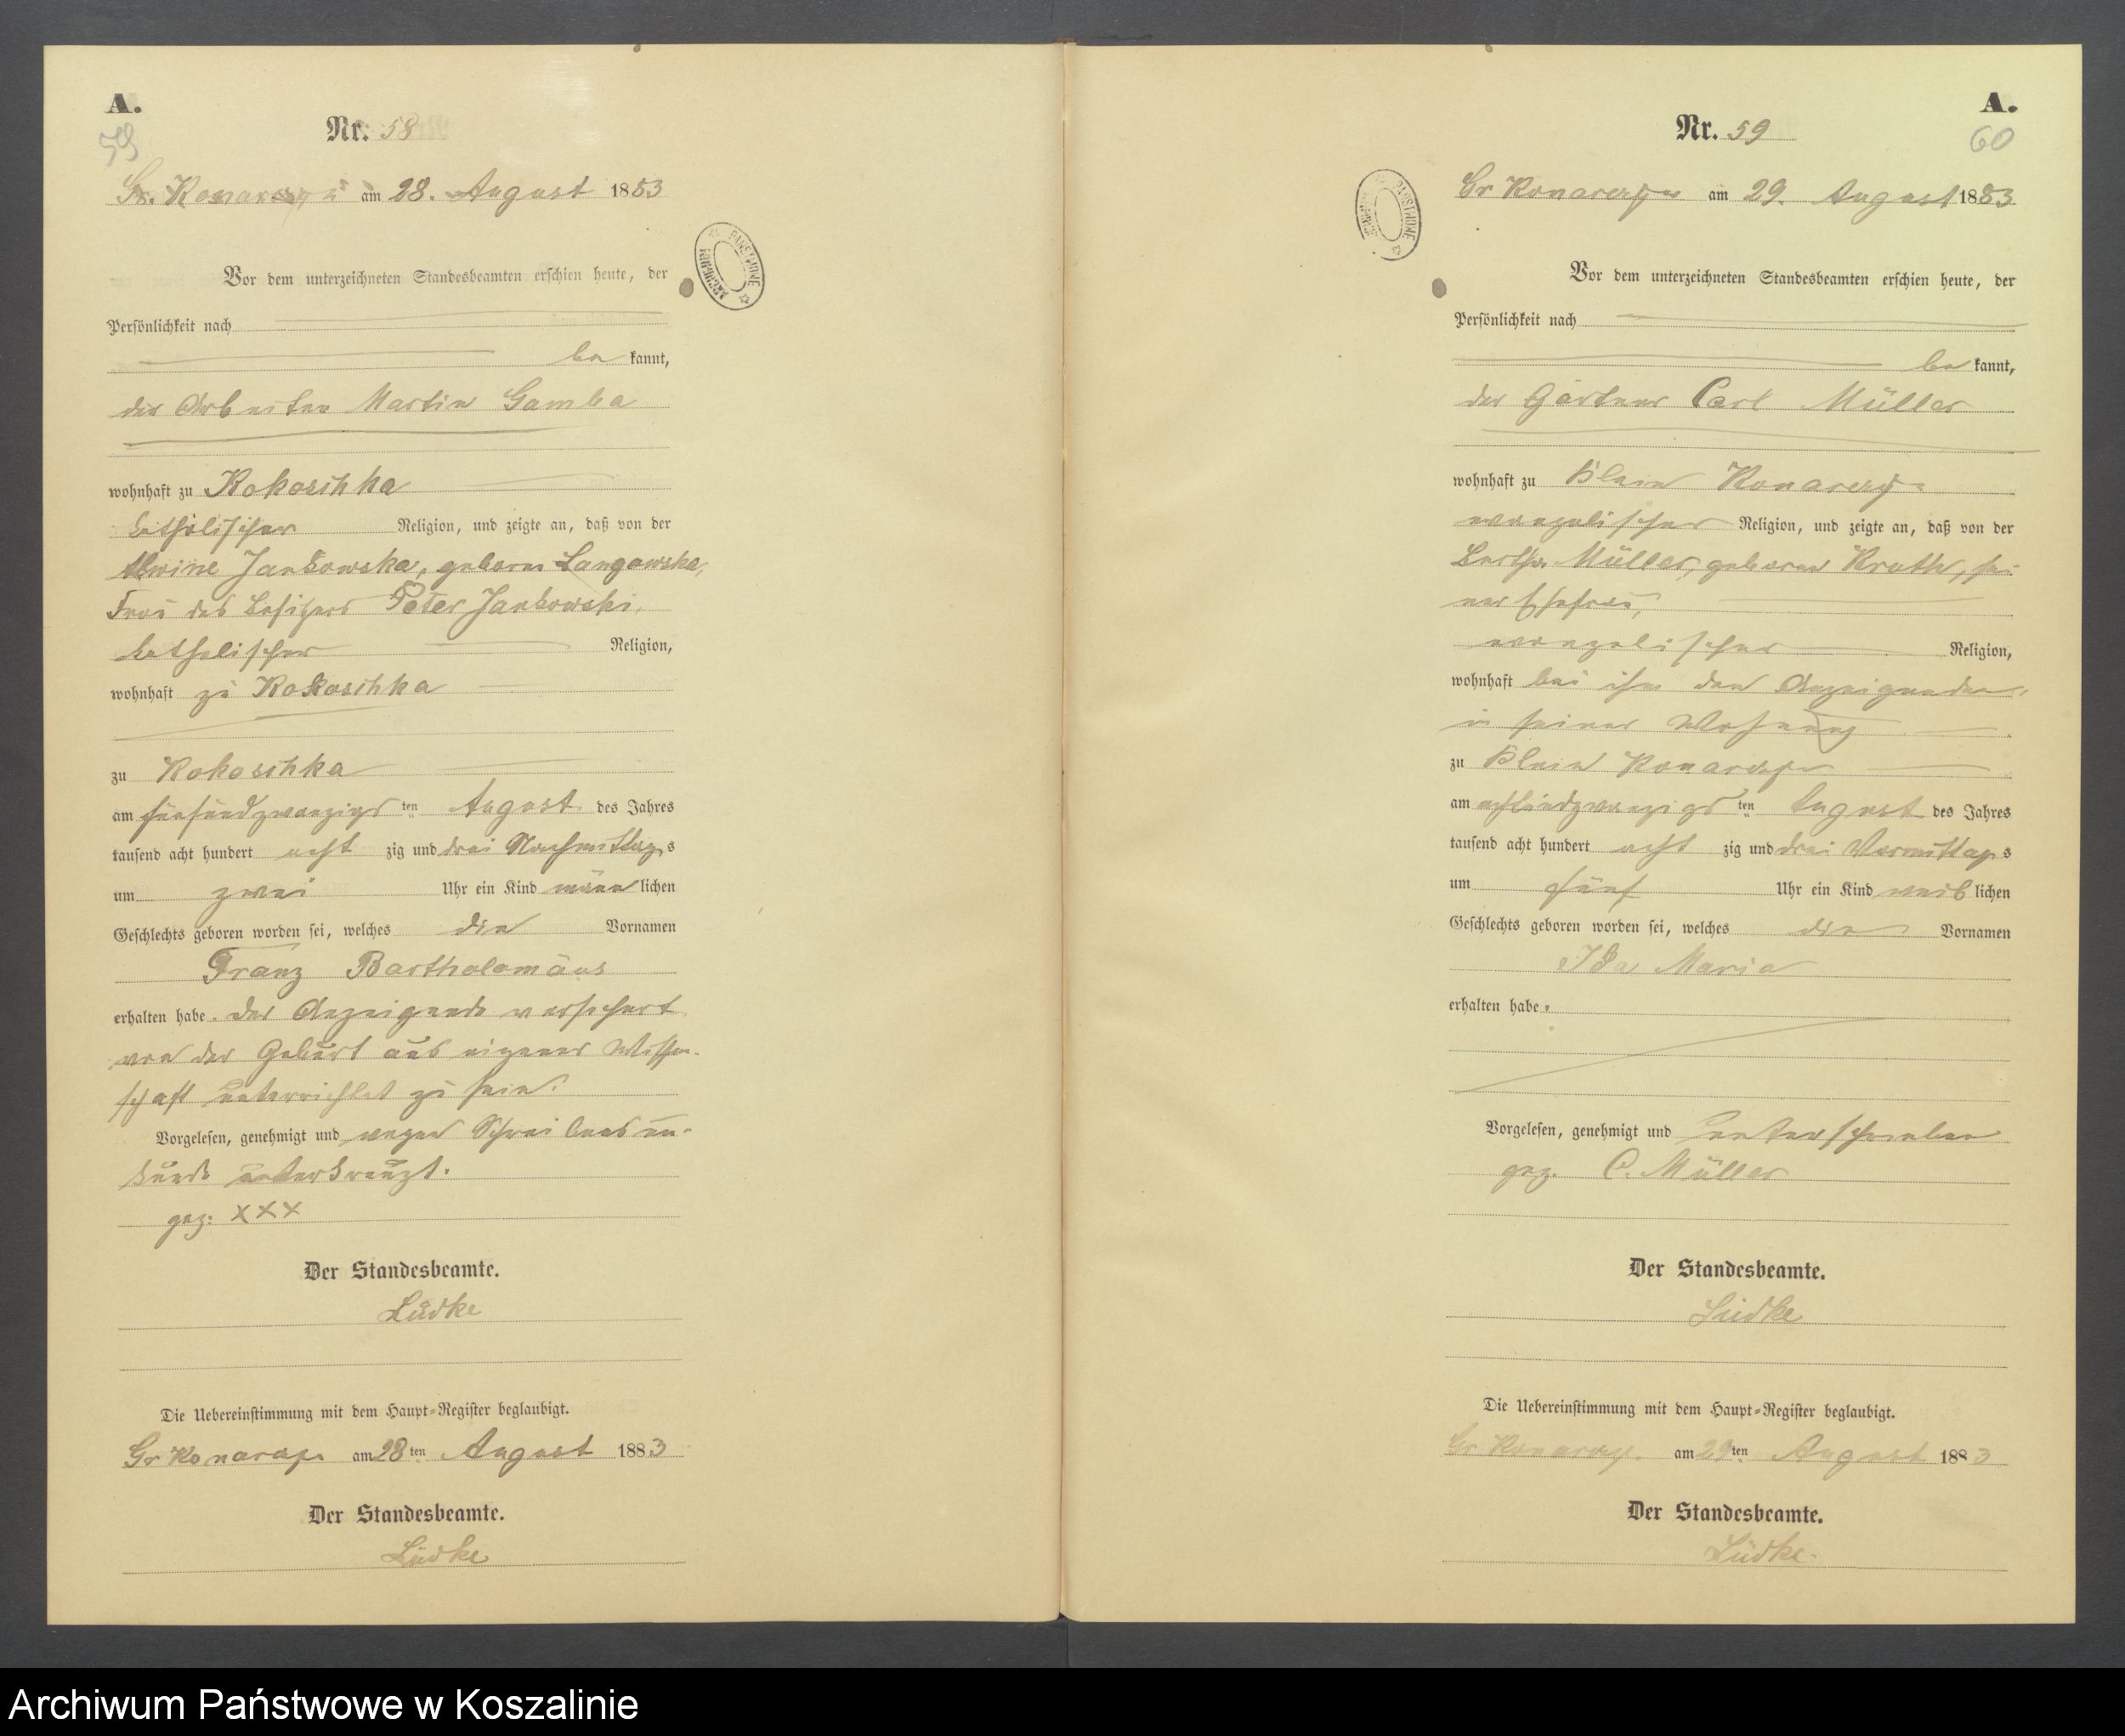 A.
59
Nr. 58
Gr. Konarczyn am 28. August 1883
Vor dem unterzeichneten Standesbeamten erschien heute, der
Persönlichkeit nach
be kannt,
der Arbeiter Martin Gamba
wohnhaft zu Kokoschka
katholischer Religion, und zeigte an, daß von der
Alwine Jankowska, geborne Langowska,
Frau des Besitzers Peter Jankowski,
katholischer Religion,
wohnhaft zu Kokoschka
zu Kokoschka
am fünfundzwanzigsten August des Jahres
tausend acht hundert acht zig und drei Nachmittags
um zwei Uhr ein Kind männlichen
Geschlechts geboren worden sei, welches den Vornamen
Franz Bartholomäus
erhalten habe. Der Anzeigende versichert
von der Geburt aus eigener Wissen-
schaft unterrichtet zu sein.
Vorgelesen, genehmigt und wegen Schreibens un-
kunde unterkreuzt.
gez: XXX
Der Standesbeamte.
Lüdke
Die Uebereinstimmung mit dem Haupt-Register beglaubigt.
Gr Konarczyn am 28ten August 1883
Der Standesbeamte.
Lüdke
A.
60
Nr. 59
Gr Konarczyn am 29. August 1883
Vor dem unterzeichneten Standesbeamten erschien heute, der
Persönlichkeit nach
be kannt,
der Gärtner Carl Müller
wohnhaft zu Klein Konarczyn
evangelischer Religion, und zeigte an, daß von der
Bertha Müller, geboren Kruth, sei-
ner Ehefrau,
evangelischer Religion,
wohnhaft bei ihm dem Anzeigenden,
in seiner Wohnung
zu Klein Konarczyn
am achtundzwanzigsten August des Jahres
tausend acht hundert acht zig und drei Vormittags
um fünf Uhr ein Kind weiblichen
Geschlechts geboren worden sei, welches den Vornamen
Ida Maria
erhalten habe.
Vorgelesen, genehmigt und unterschrieben
gez. C. Müller
Der Standesbeamte.
Lüdke
Die Uebereinstimmung mit dem Haupt-Register beglaubigt.
Gr Konarczyn am 29ten August 1883
Der Standesbeamte.
Lüdke.
Archiwum Państwowe w Koszalinie